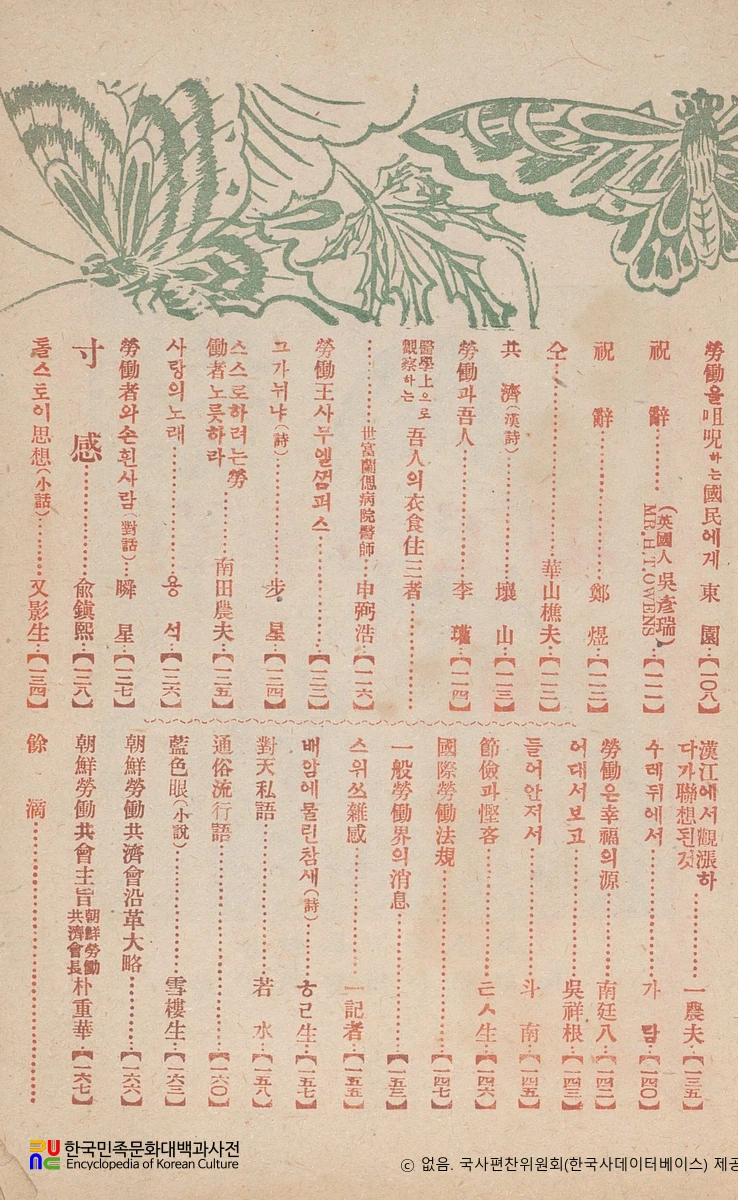 勞働을咀呪하는國民에게 東園…【一〇八】
祝辭……(英國人 吳彦瑞) MR. H. T. OWENS…【一一一】
祝辭……鄭煜…【一一二】
仝……華山樵夫…【一一二】
共濟(漢詩)……壤山…【一一三】
勞働과吾人……李瓘…【一一四】
醫學上으로觀察하는 吾人의衣食住三者……
……世富蘭偲病院醫師…申弼浩…【一一六】
勞働王사무엘껌퍼스……【一二二】
그가뉘냐(詩)……步星…【一二四】
스스로하려는勞働者노릇하라……南田農夫…【一二五】
사랑의노래……용석…【一二六】
勞働者와손흰사람(對話)…瞬星…【一二七】
寸感……兪鎭熙…【一二八】
톨스토이思想(小話)……又影生…【一三四】
漢江에서觀漲하다가聯想된것……一農夫…【一三五】
수레뒤에서……가담…【一四〇】
勞働은幸福의源……南廷八…【一四二】
어대서보고……吳祥根…【一四三】
들어안저서……斗南…【一四五】
節儉과慳吝……ㄷㅅ生…【一四六】
國際勞働法規……【一四七】
一般勞働界의消息……【一五三】
스위쓰雜感……一記者…【一五五】
배암에물린참새(詩)……ㅎㄹ生…【一五七】
對天私語……若水…【一五八】
通俗流行語……【一六〇】
藍色眼(小說)……雪樓生…【一六三】
朝鮮勞働共濟會沿革大略……【一六六】
朝鮮勞働共會主旨 朝鮮勞働共濟會長 朴重華…【一六七】
餘滴……
한국민족문화대백과사전
Encyclopedia of Korean Culture
ⓒ 없음. 국사편찬위원회(한국사데이터베이스) 제공